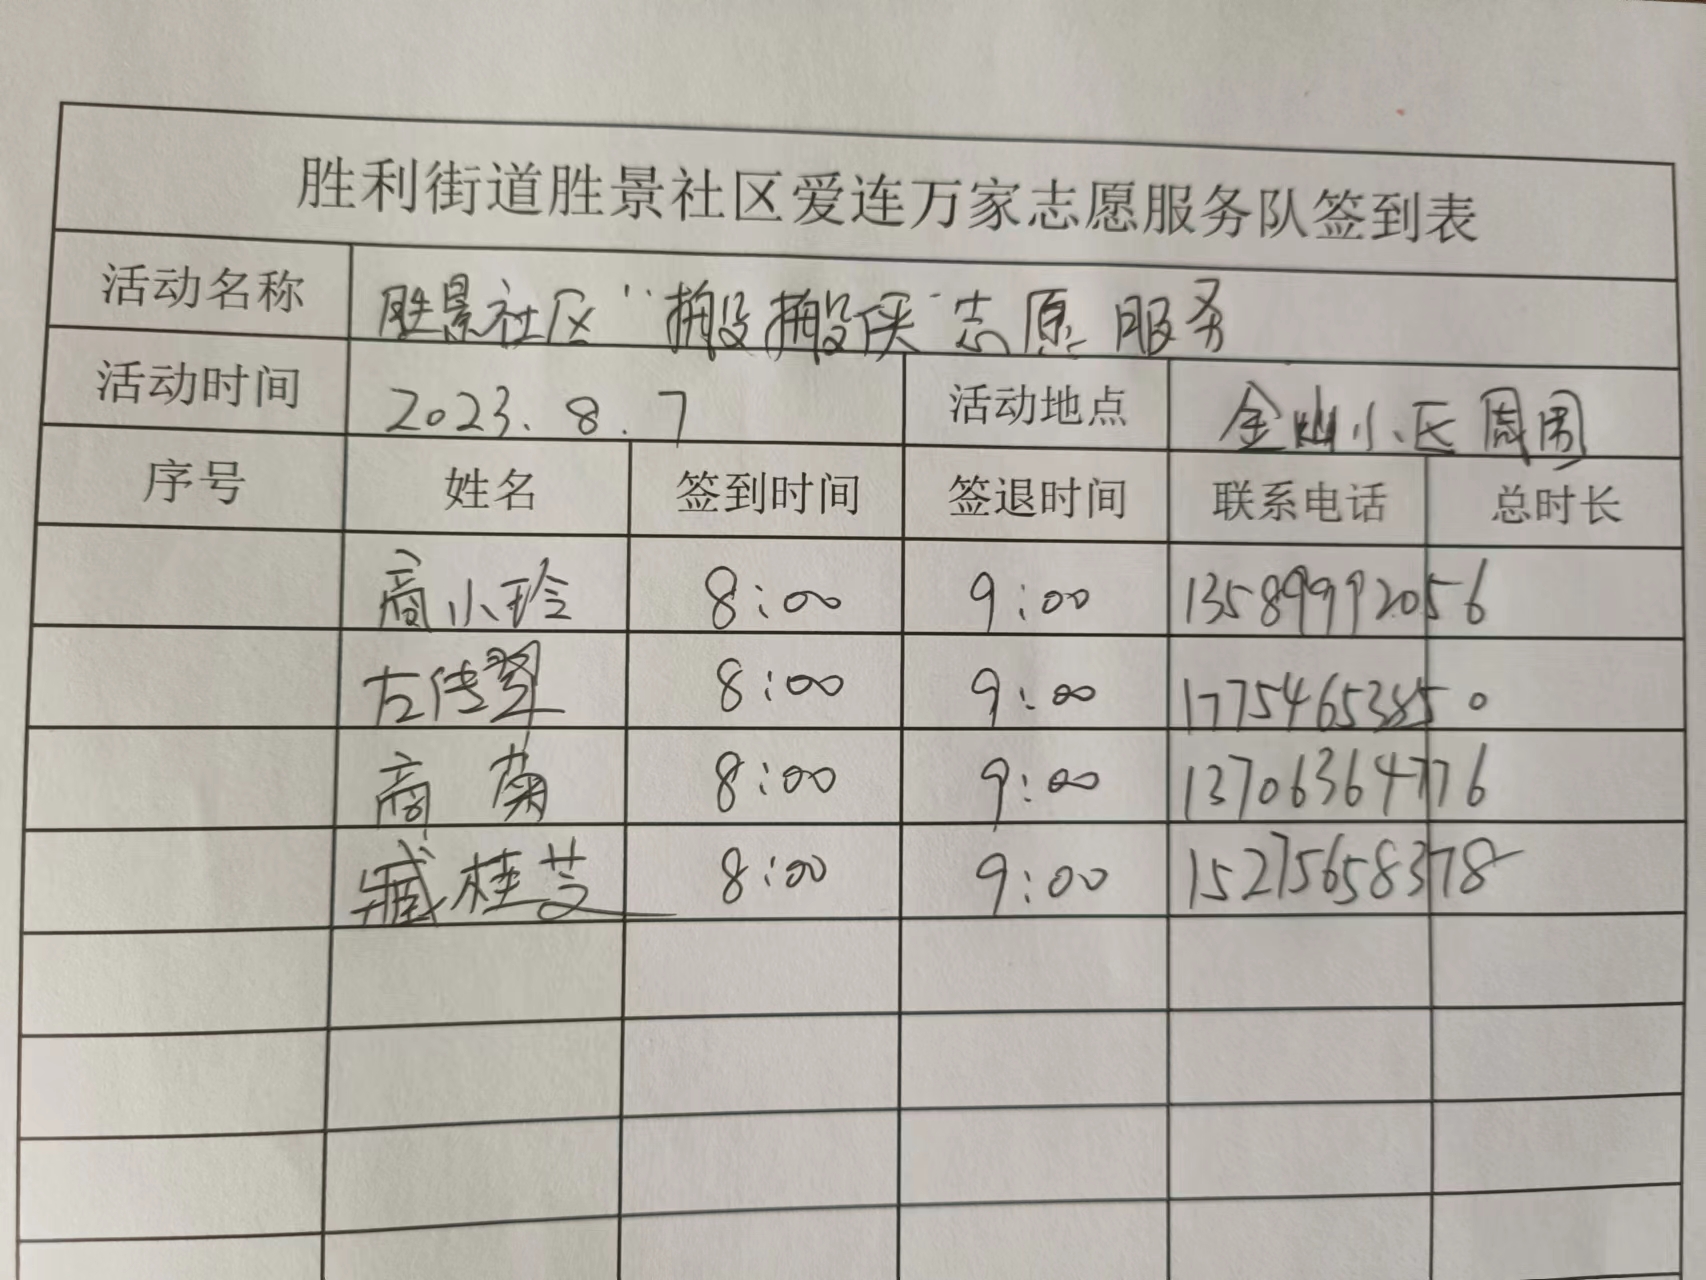 胜利街道胜景社区爱连万家志愿服务队签到表
活动名称 胜景社区“搬搬侠”志愿服务
活动时间 2023.8.7 活动地点 金灿小区周围
序号 姓名 签到时间 签退时间 联系电话 总时长
商小玲 8:00 9:00 13589992056
左传翠 8:00 9:00 17754653850
商菊 8:00 9:00 13706364776
臧桂芝 8:00 9:00 15275658378